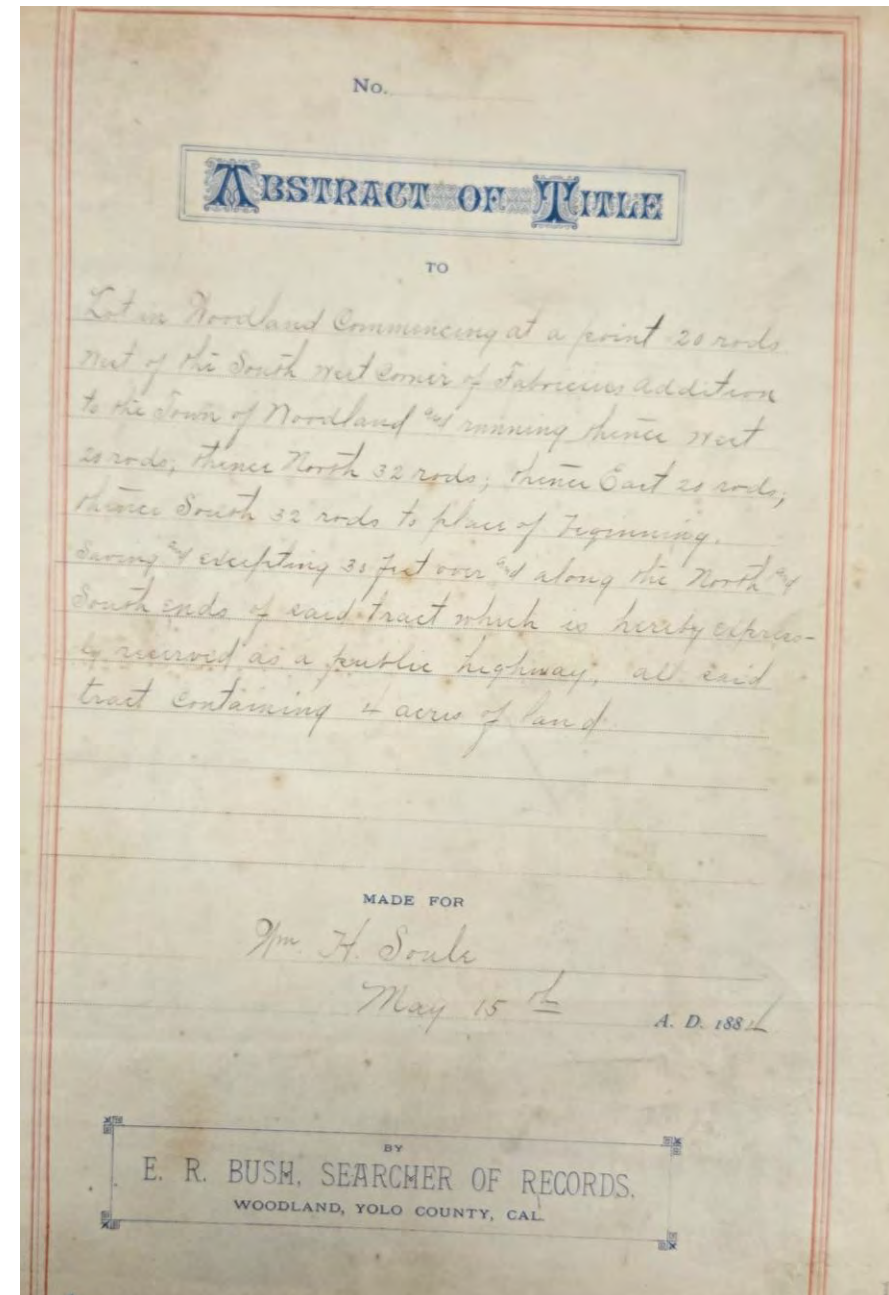 No.
ABSTRACT OF TITLE
TO
Lot in Woodland Commencing at a point 20 rods
West of the South West Corner of Fabricius Addition
to the Town of Woodland and running thence West
20 rods; thence North 32 rods; thence East 20 rods;
thence South 32 rods to place of beginning.
Saving and excepting 30 feet over and along the North and
South ends of said tract which is hereby express-
ly reserved as a public highway, all said
tract containing 4 acres of land
MADE FOR
Wm. H. Soule
May 15th
A. D. 1884
BY
E. R. BUSH, SEARCHER OF RECORDS.
WOODLAND, YOLO COUNTY, CAL.